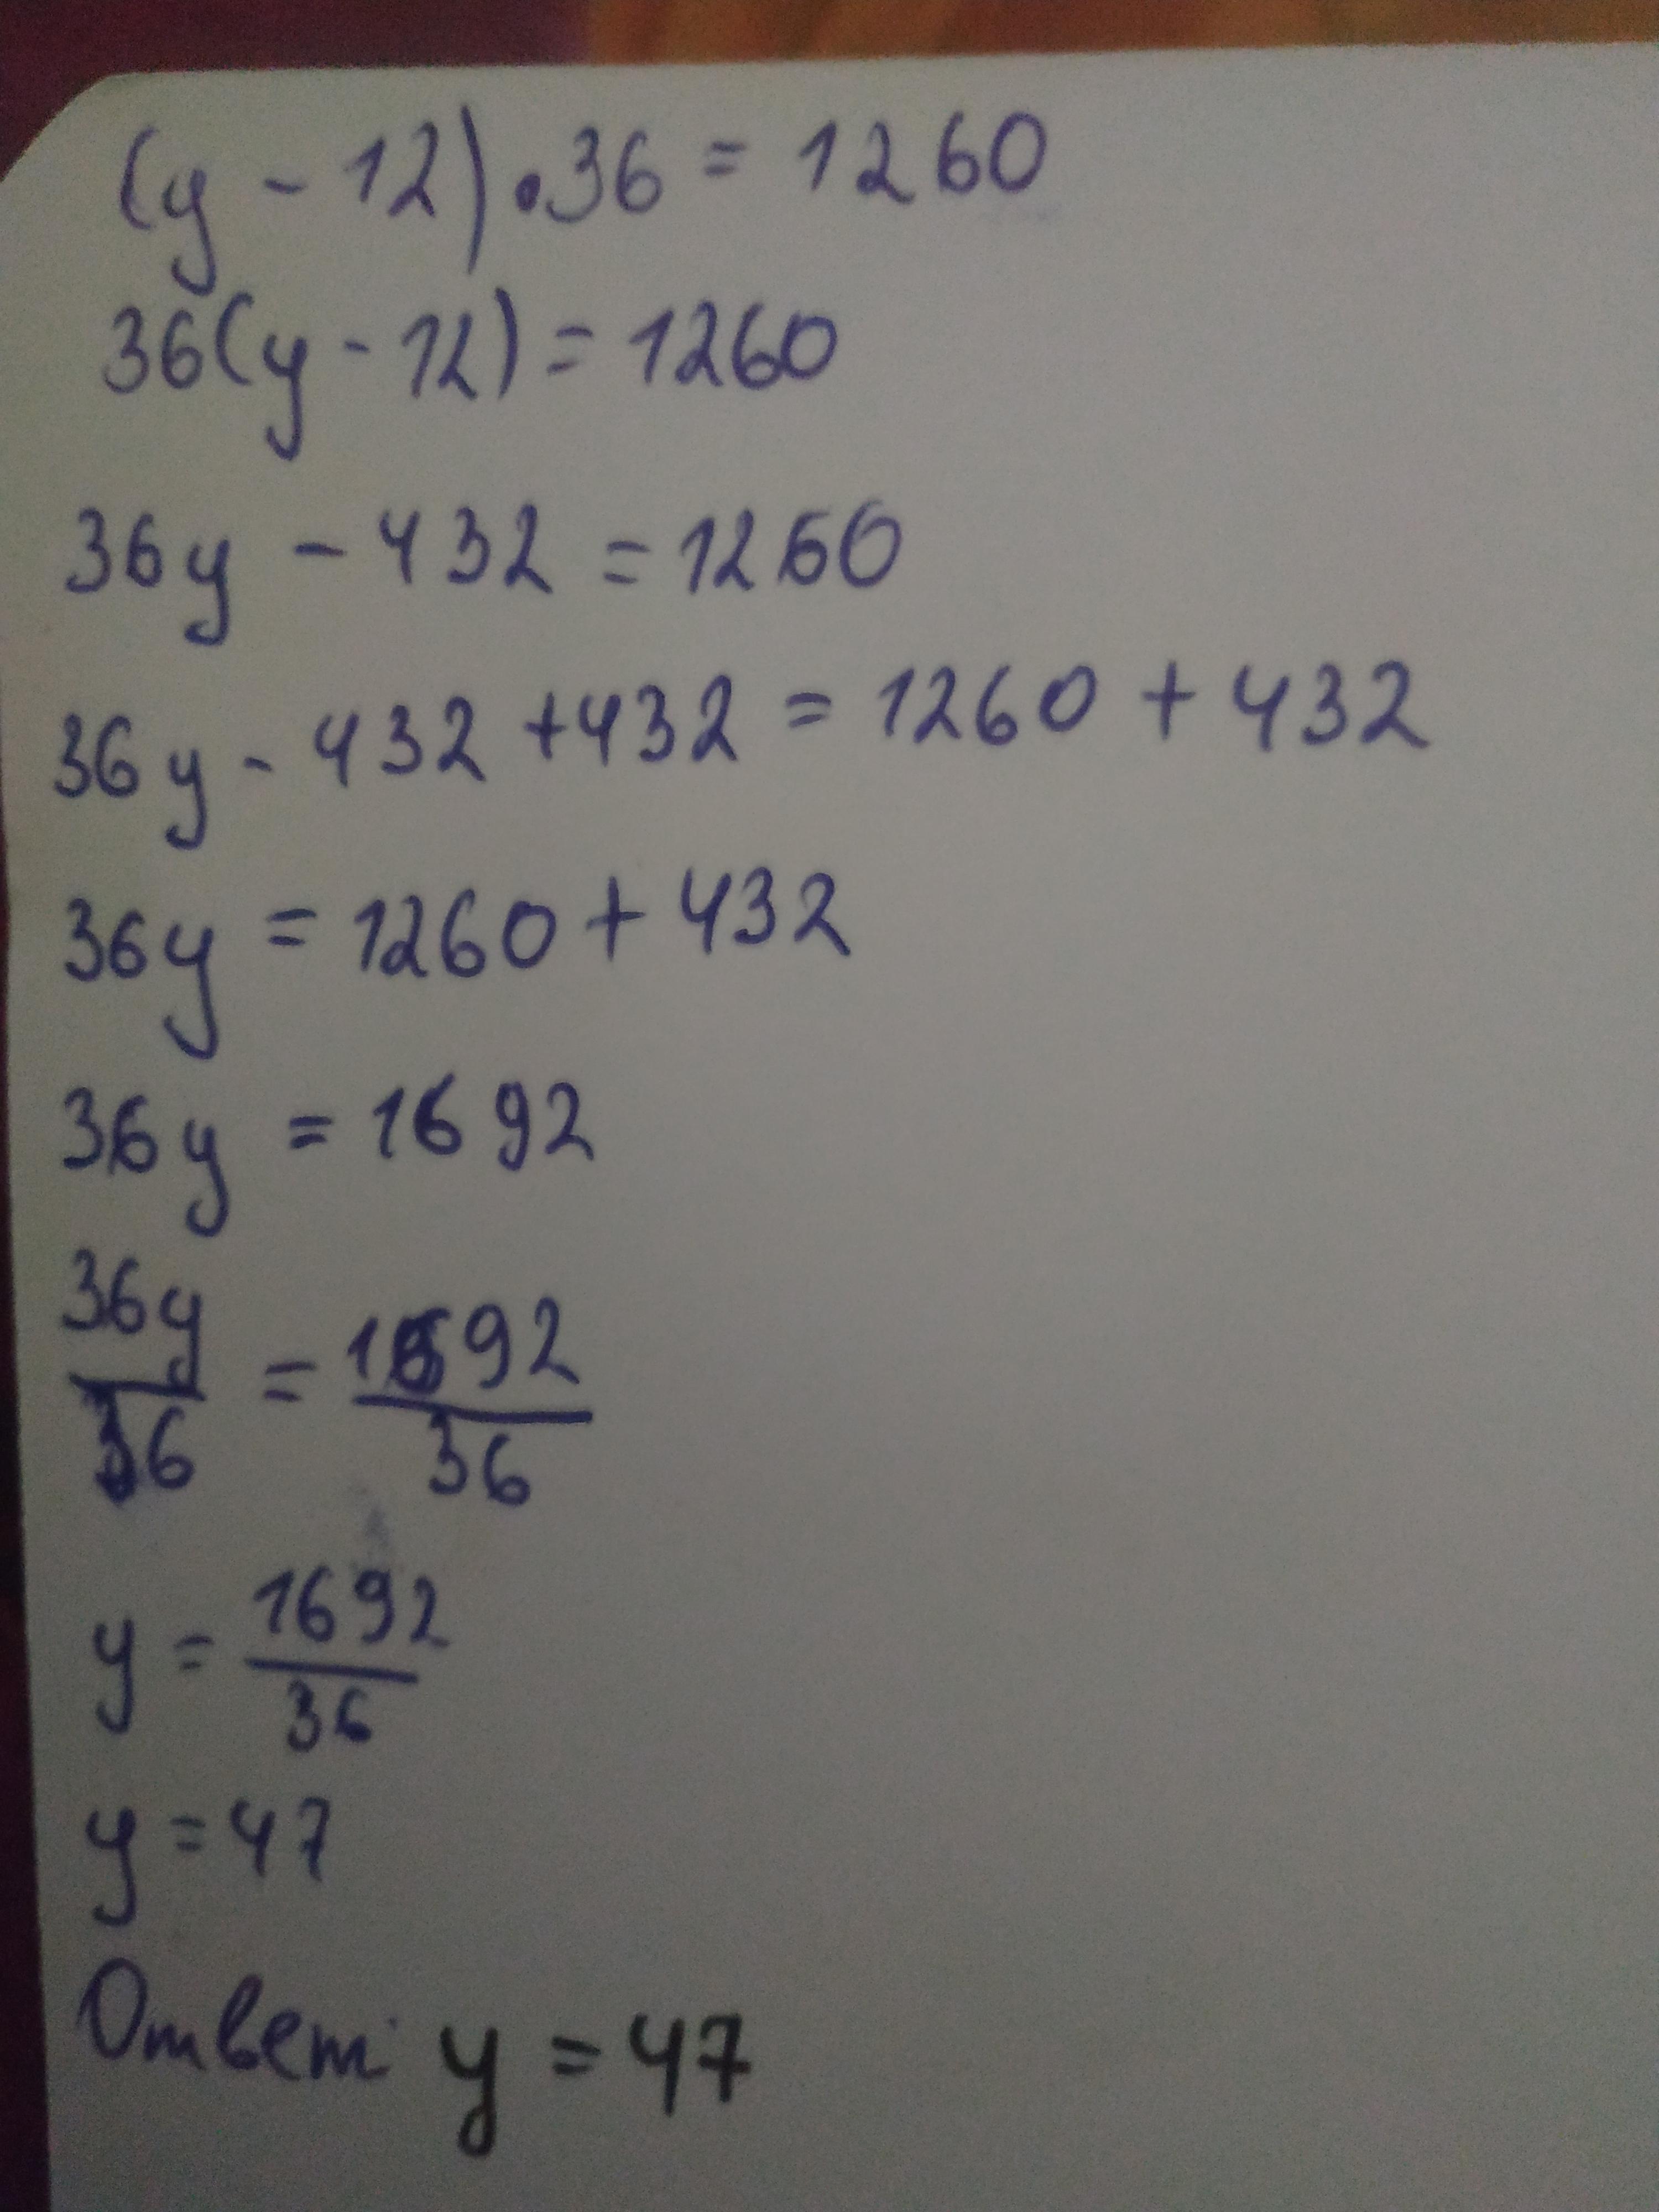 (y - 12) • 36 = 1260
36(y - 12) = 1260
36y - 432 = 1260
36y - 432 + 432 = 1260 + 432
36y = 1260 + 432
36y = 1692
36y/36 = 1692/36
y = 1692/36
y = 47
Ответ: y = 47